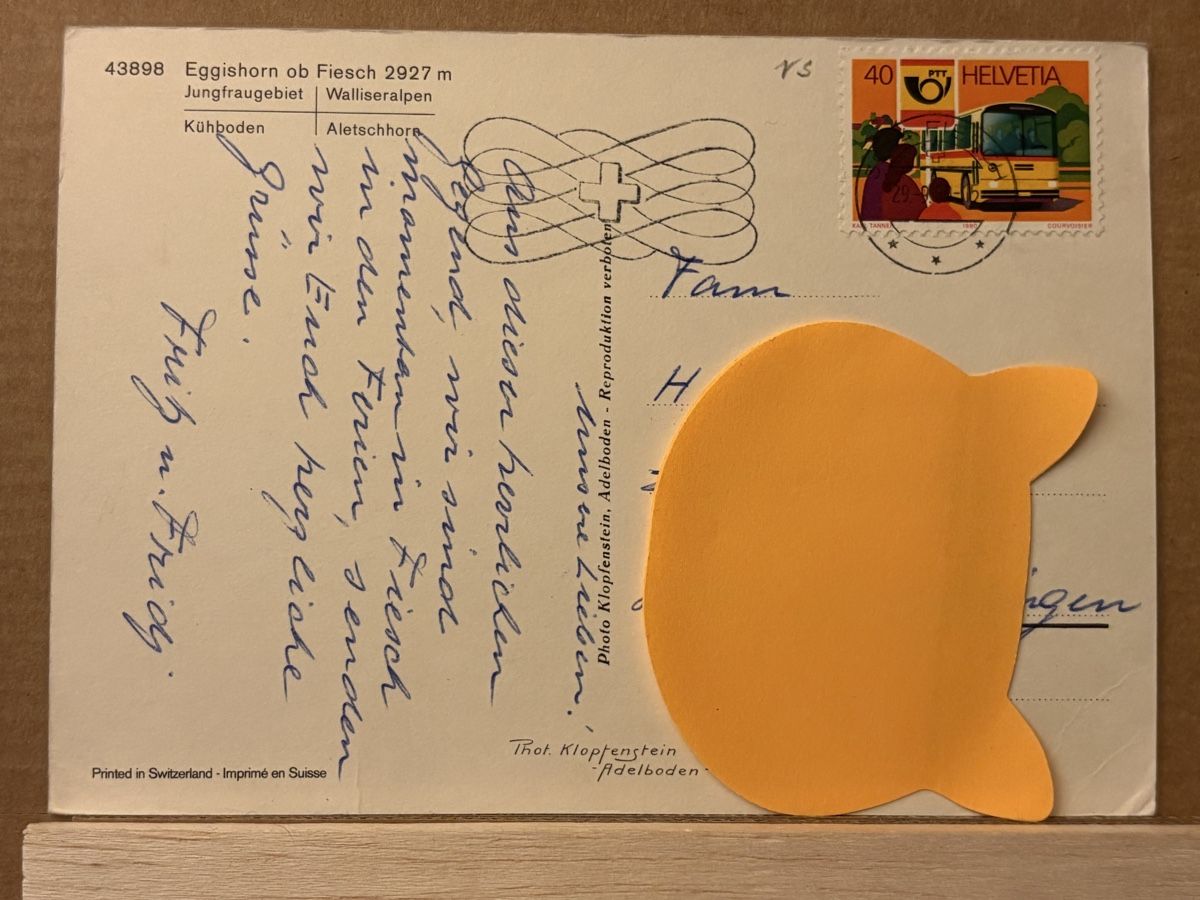 43898 Eggishorn ob Fiesch 2927 m
Jungfraugebiet Walliseralpen
Kühboden Aletschhorn
VS
40 PTT HELVETIA
KARL TANNER 1980 COURVOISIER
Unsere Lieben!
Aus dieser herrlichen
Gegend, wir sind
momentan in Fiesch
in den Ferien, senden
wir Euch herzliche
Grüsse.
Fritz u. Fridy.
Photo Klopfenstein, Adelboden - Reproduktion verboten
Fam
H
ngen
Phot. Klopfenstein
-Adelboden-
Printed in Switzerland - Imprimé en Suisse